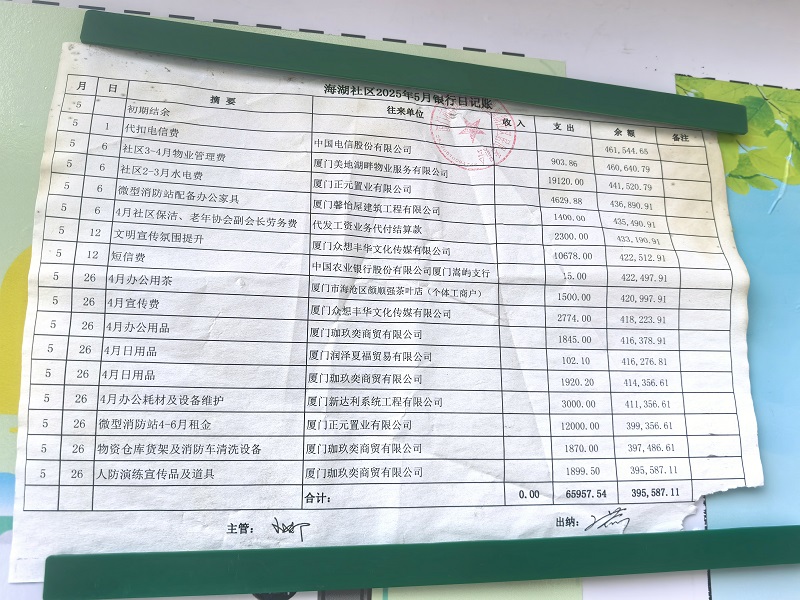 海湖社区2025年5月银行日记账
月 日 摘 要 往来单位 收 入 支 出 余 额 备注
5 初期结余 461,544.65
5 1 代扣电信费 中国电信股份有限公司 903.86 460,640.79
5 6 社区3-4月物业管理费 厦门美地湖畔物业服务有限公司 19120.00 441,520.79
5 6 社区2-3月水电费 厦门正元置业有限公司 4629.88 436,890.91
5 6 微型消防站配备办公家具 厦门馨怡屋建筑工程有限公司 1400.00 435,490.91
5 6 4月社区保洁、老年协会副会长劳务费 代发工资业务代付结算款 2300.00 433,190.91
5 12 文明宣传氛围提升 厦门众想丰华文化传媒有限公司 10678.00 422,512.91
5 12 短信费 中国农业银行股份有限公司厦门嵩屿支行 15.00 422,497.91
5 26 4月办公用茶 厦门市海沧区颜顺强茶叶店（个体工商户） 1500.00 420,997.91
5 26 4月宣传费 厦门众想丰华文化传媒有限公司 2774.00 418,223.91
5 26 4月办公用品 厦门珈玖奕商贸有限公司 1845.00 416,378.91
5 26 4月日用品 厦门润泽夏福贸易有限公司 102.10 416,276.81
5 26 4月日用品 厦门珈玖奕商贸有限公司 1920.20 414,356.61
5 26 4月办公耗材及设备维护 厦门新达利系统工程有限公司 3000.00 411,356.61
5 26 微型消防站4-6月租金 厦门正元置业有限公司 12000.00 399,356.61
5 26 物资仓库货架及消防车清洗设备 厦门珈玖奕商贸有限公司 1870.00 397,486.61
5 26 人防演练宣传品及道具 厦门珈玖奕商贸有限公司 1899.50 395,587.11
合计： 0.00 65957.54 395,587.11
主管： 出纳：